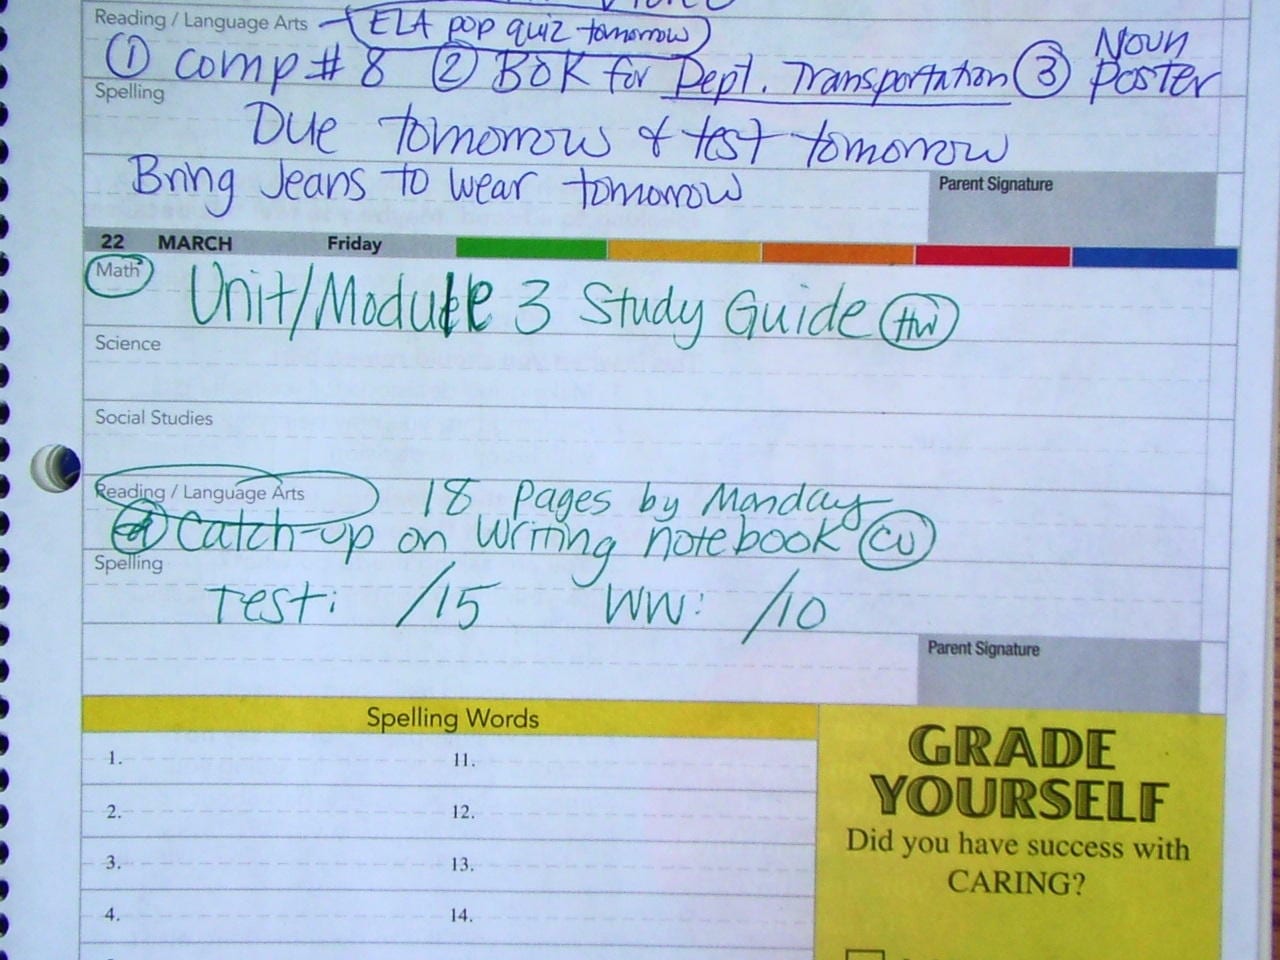 Reading / Language Arts ELA pop quiz tomorrow
① comp # 8 ② BOK for Dept. Transportation ③ Noun Poster
Spelling
Due tomorrow & test tomorrow
Bring Jeans to wear tomorrow
Parent Signature
22 MARCH Friday
Math
Unit/Module 3 Study Guide HW
Science
Social Studies
Reading / Language Arts 18 pages by Monday
Catch-up on writing notebook CW
Spelling
Test: /15 WW: /10
Parent Signature
Spelling Words
1. 11.
2. 12.
3. 13.
4. 14.
GRADE
YOURSELF
Did you have success with
CARING?